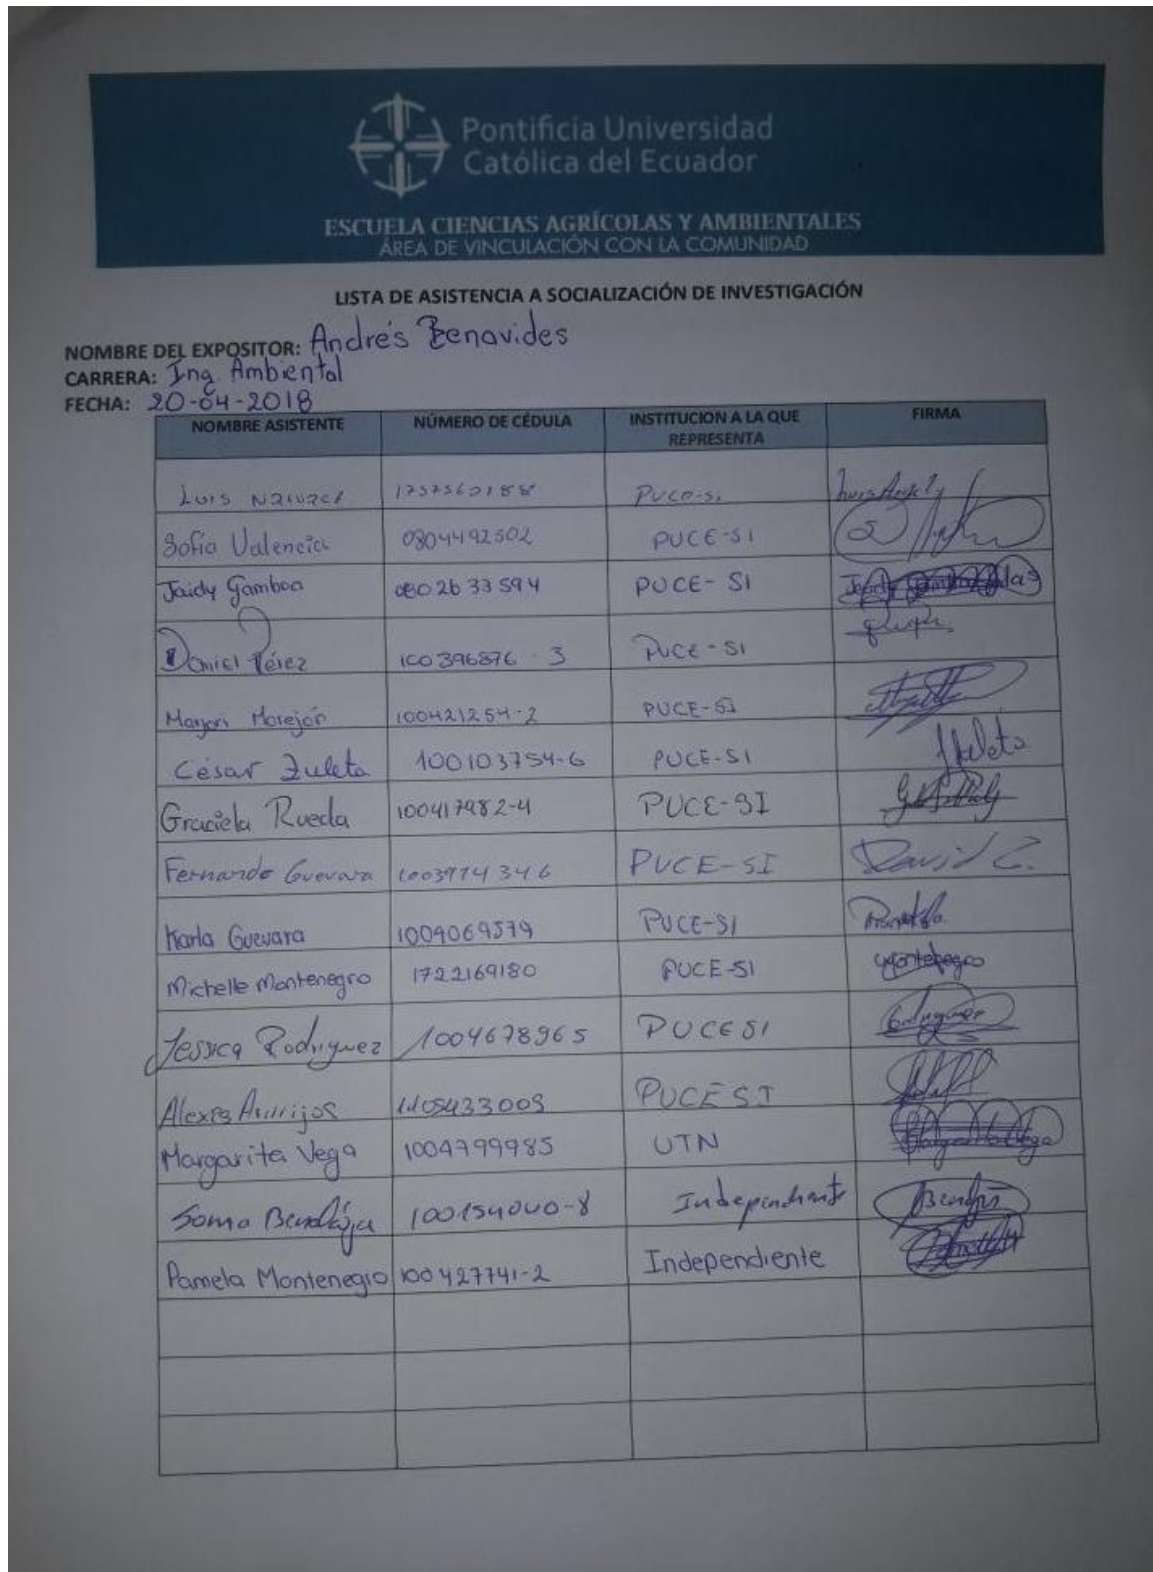 Pontificia Universidad
Católica del Ecuador
ESCUELA CIENCIAS AGRÍCOLAS Y AMBIENTALES
ÁREA DE VINCULACIÓN CON LA COMUNIDAD
LISTA DE ASISTENCIA A SOCIALIZACIÓN DE INVESTIGACIÓN
NOMBRE DEL EXPOSITOR: Andrés Benavides
CARRERA: Ing Ambiental
FECHA: 20-04-2018
NOMBRE ASISTENTE NÚMERO DE CÉDULA INSTITUCION A LA QUE REPRESENTA FIRMA
Luis PUCE-SI
Sofía Valencia 0804492502 PUCE-SI
Jaidy Gamboa 0802633594 PUCE-SI
Daniel Pérez 100396876-3 PUCE-SI
Morejón 100421254-2 PUCE-SI
César Zuleta 100103754-6 PUCE-SI Zuleta
Graciela Rueda 100417982-4 PUCE-SI
Fernando Guevara PUCE-SI David G.
Karla Guevara 1004069579 PUCE-SI
Michelle Montenegro 1722169180 PUCE-SI Montenegro
Jessica Rodriguez 1004678965 PUCESI
Alexis PUCESI
Margarita Vega 1004799985 UTN
100154040-8 Independiente
Pamela Montenegro 100427741-2 Independiente